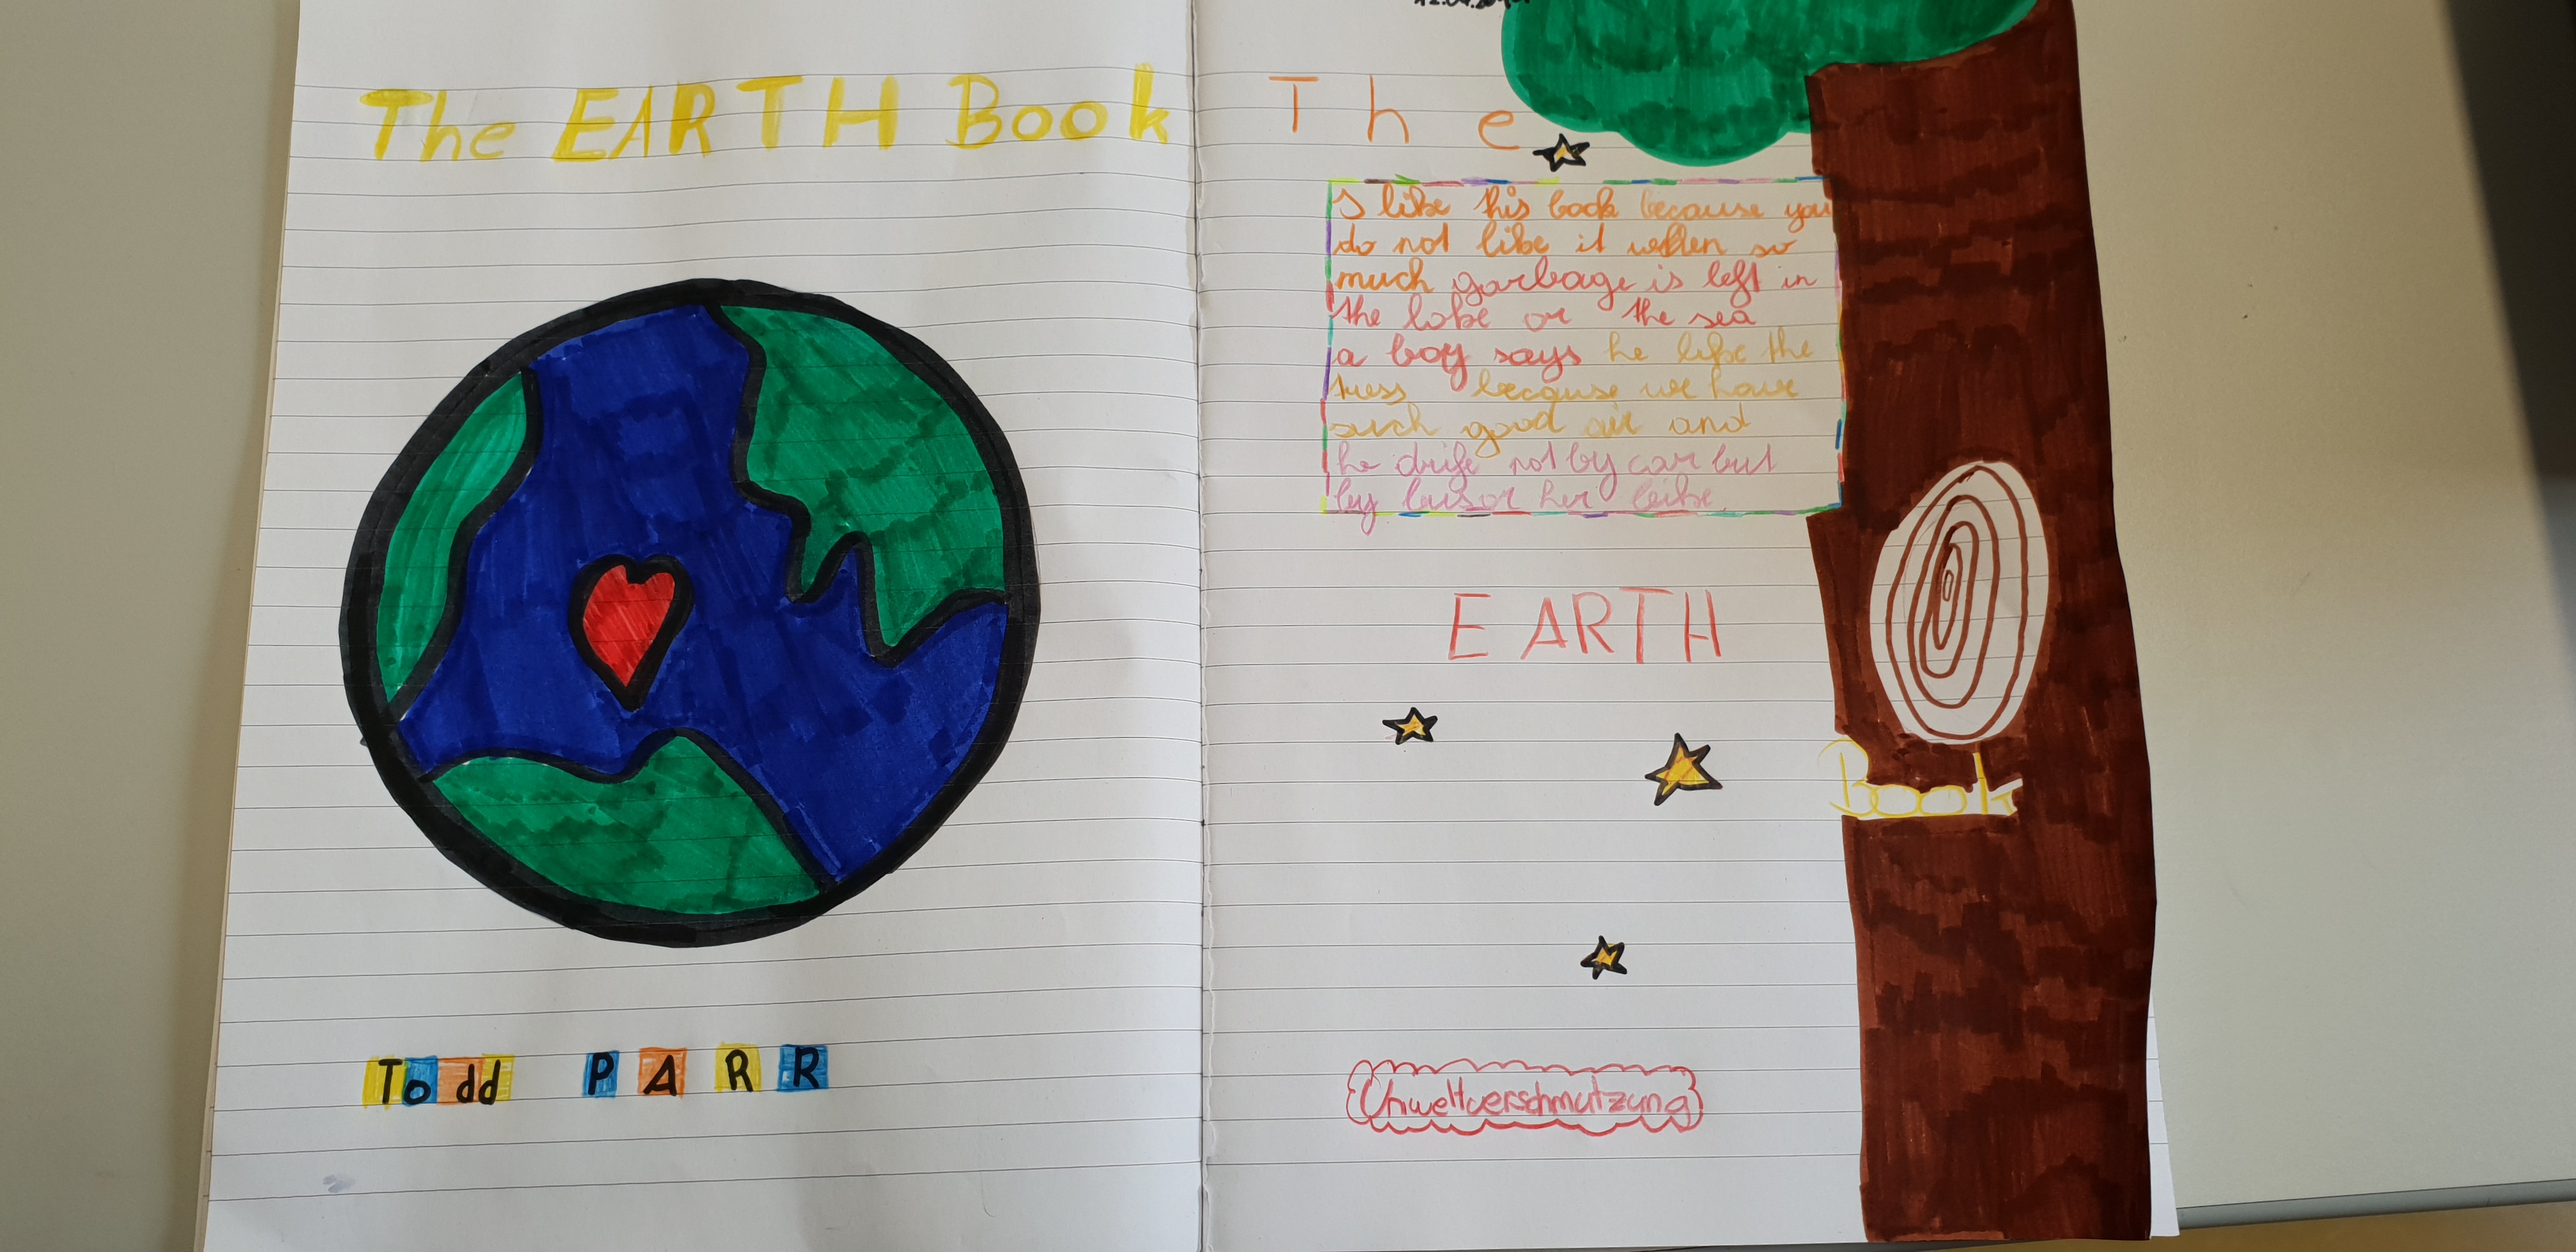 The EARTH Book
Todd PARR
The
I like this book because you
do not like it when so
much garbage is left in
the lobe or the sea
a boy says he like the
tress because we have
such good air and
he drife not by car but
by bus or her beike
EARTH
Book
Umweltverschmutzung